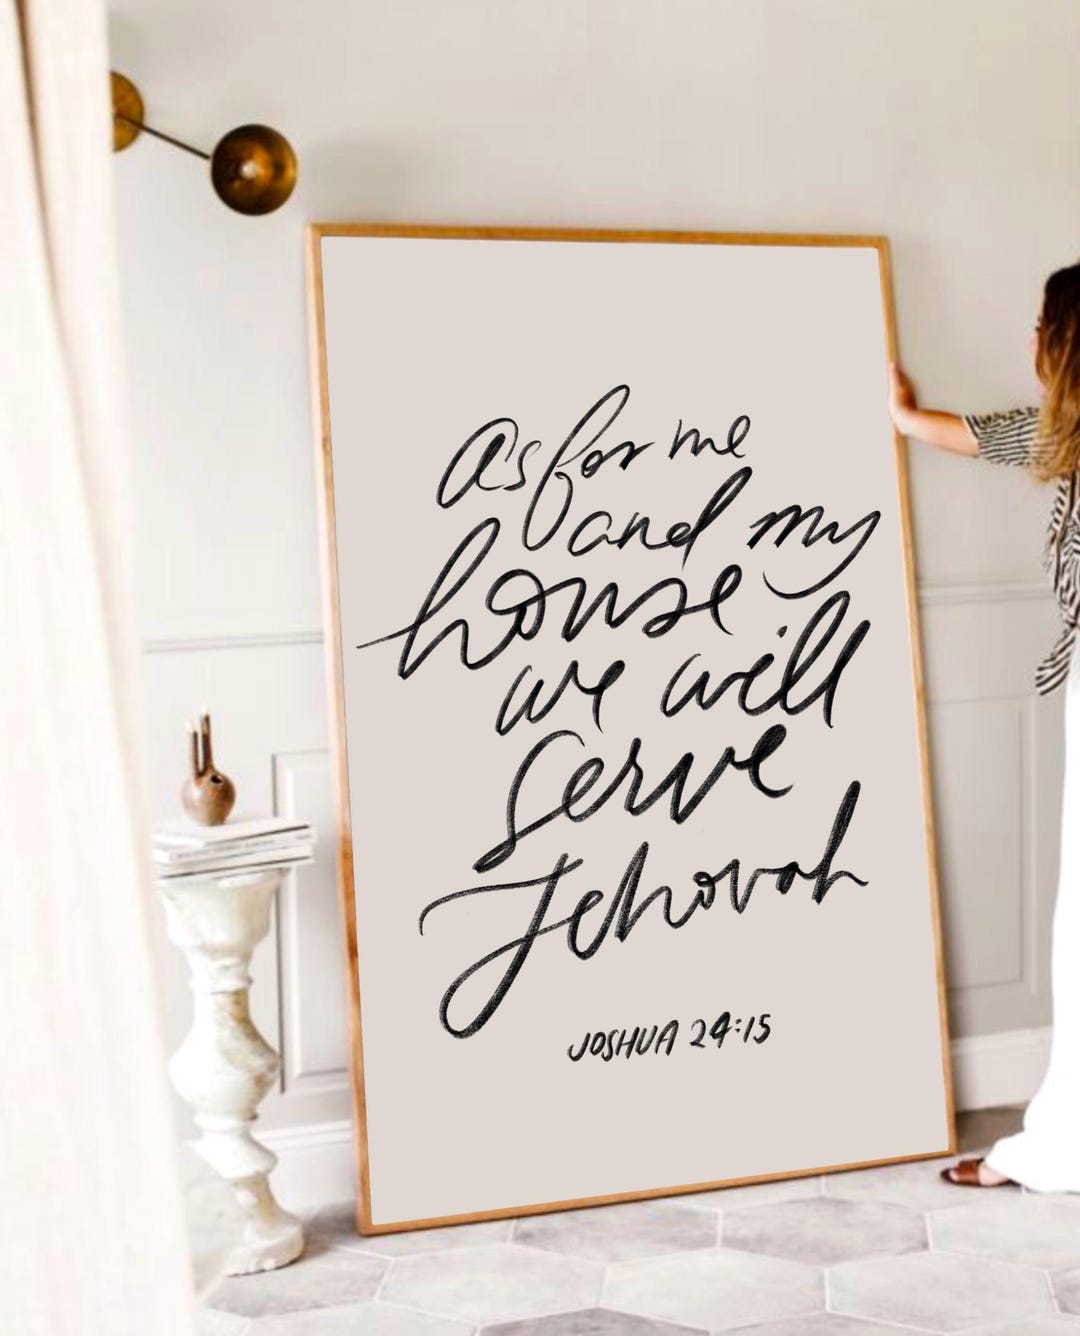 as for me
and my
house
we will
serve
Jehovah
JOSHUA 24:15